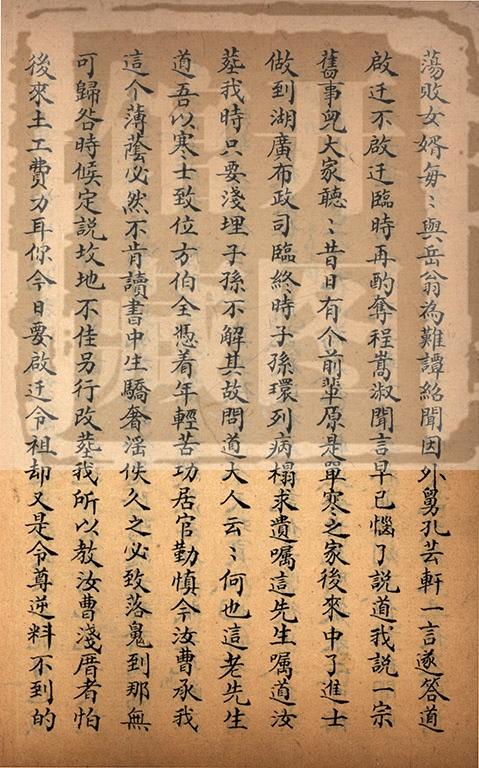 蕩敗女婿每〻與岳翁為難譚紹聞因外舅孔芸軒一言遂答道
啟迁不啟迁臨時再酌奪程嵩淑聞言早已惱了說道我說一宗
舊事兒大家聽〻昔日有个前輩原是單寒之家後來中了進士
做到湖廣布政司臨終時子孫環列病榻求遺囑這先生囑道汝
塟我時只要淺埋子孫不解其故問道大人云〻何也這老先生
道吾以寒士致位方伯全憑着年輕苦功居官勤慎今汝曹承我
這个薄蔭必然不肯讀書中生驕奢滛佚久之必致落鬼到那無
可歸咎時候定説坟地不佳另行改塟我所以教汝曹淺厝者怕
後來土工費力耳你今日要啟迁令祖却又是令尊逆料不到的